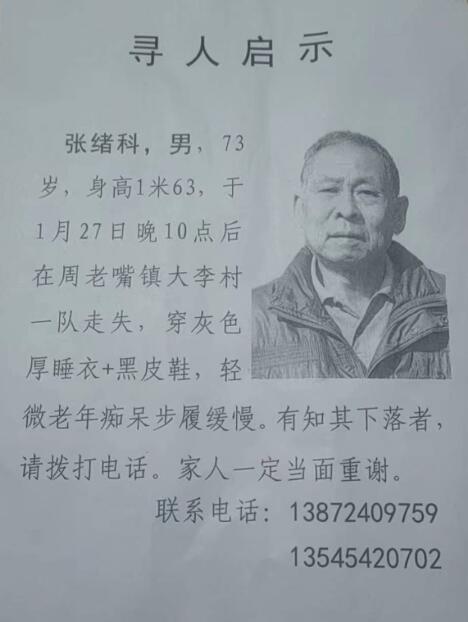 寻人启示
张绪科，男，73
岁，身高1米63，于
1月27日晚10点后
在周老嘴镇大李村
一队走失，穿灰色
厚睡衣+黑皮鞋，轻
微老年痴呆步履缓慢。有知其下落者，
请拨打电话。家人一定当面重谢。
联系电话：13872409759
13545420702